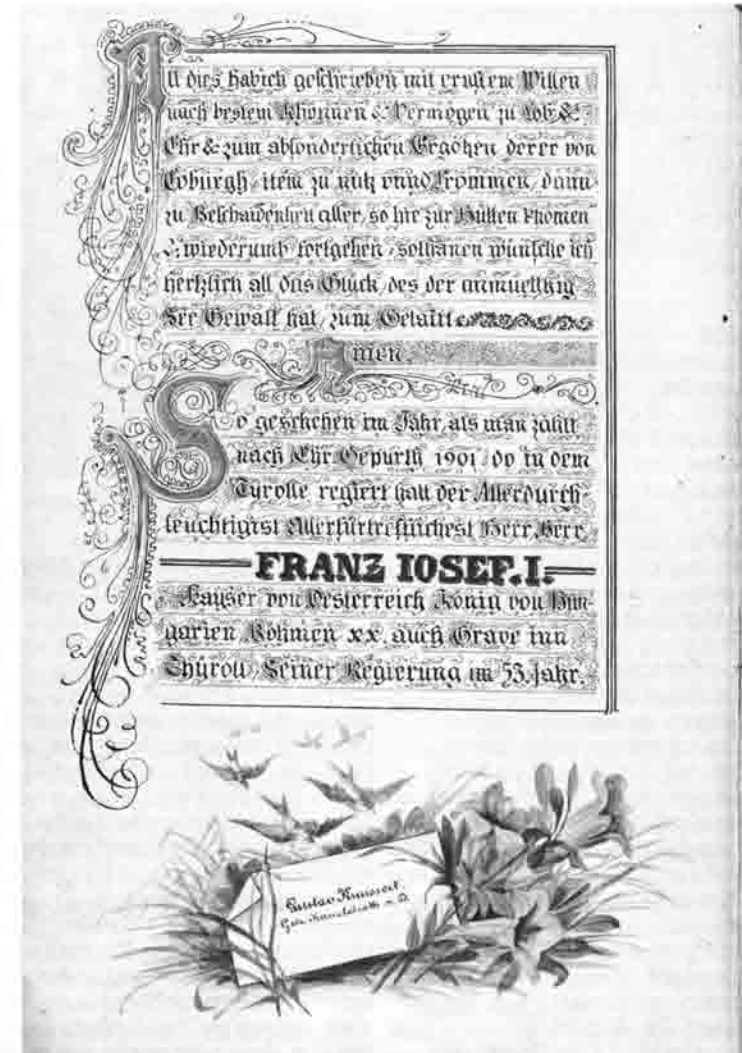 All dies habich geschrieben mit ernstem Willen
nach bestem Khönnen & Vermögen zu Lob &
Ehr & zum absonderlichen Ergötzen derer von
Coburgh, item zu nutz vnnd Frommen, dann
zu aller, so hie zur Hütten khomen
& wiederumb fortgehen, sothanen wünsche ich
hertzlich all das Glück, des der
Gewalt hat, zum Gelaitt
Amen.
So geschehen im Jahr, als man zählt
nach Chr. Gepurth 1901, do in dem
Tyrolle regiert hatt der Allerdurch-
leuchtigist Allerfürtreflichest Herr, Herr
FRANZ IOSEF. I.
Kayser von Oesterreich König von Hun-
garien, Böhmen xx. auch Grave inn
Thyroll, Seiner Regierung im 53. Jahr.
Gustav